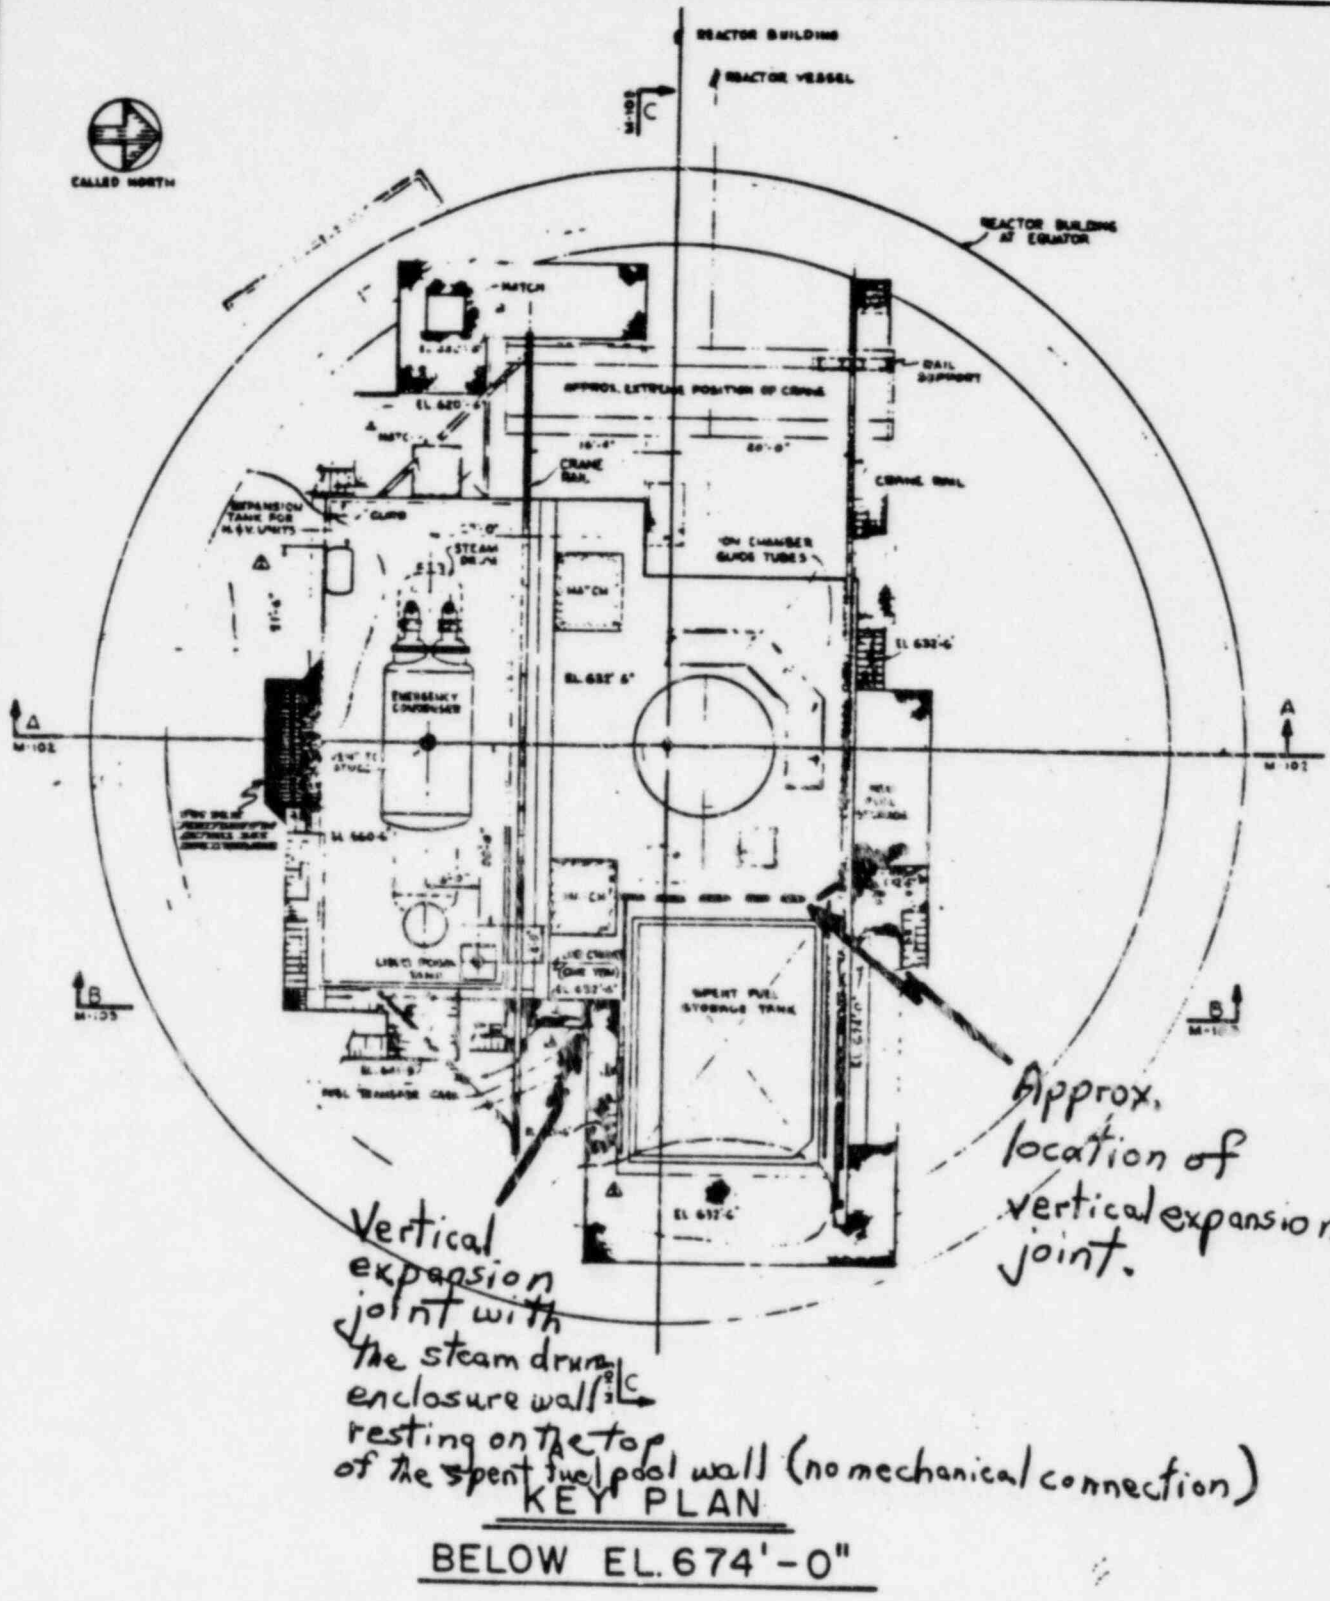 REACTOR BUILDING
REACTOR VESSEL
M-102
C
CALLED NORTH
REACTOR BUILDING
AT EQUATOR
HATCH
RAIL
SUPPORT
APPROX. EXTREME POSITION OF CRANE
EL 620'-6"
16'-6"
20'-0"
CRANE
RAIL
CRANE RAIL
EXPANSION
TANK FOR
H.&V. UNITS
CURB
STEAM
DRUM
ION CHAMBER
GUIDE TUBES
HATCH
EL 632'-6"
EL 632' 6"
EMERGENCY
CONDENSER
A
M-102
A
M-102
VENT TO
EL 660-6"
STORAGE
HATCH
LIQUID POISON
TANK
EL 632'-6"
SPENT FUEL
STORAGE TANK
B
M-103
B
FUEL TRANSFER CASK
EL 632'-6"
Approx.
location of
vertical expansion
joint.
Vertical
expansion
joint with
the steam drum
enclosure wall
C
resting on the top
of the spent fuel pool wall (no mechanical connection)
KEY PLAN
BELOW EL. 674'-0"